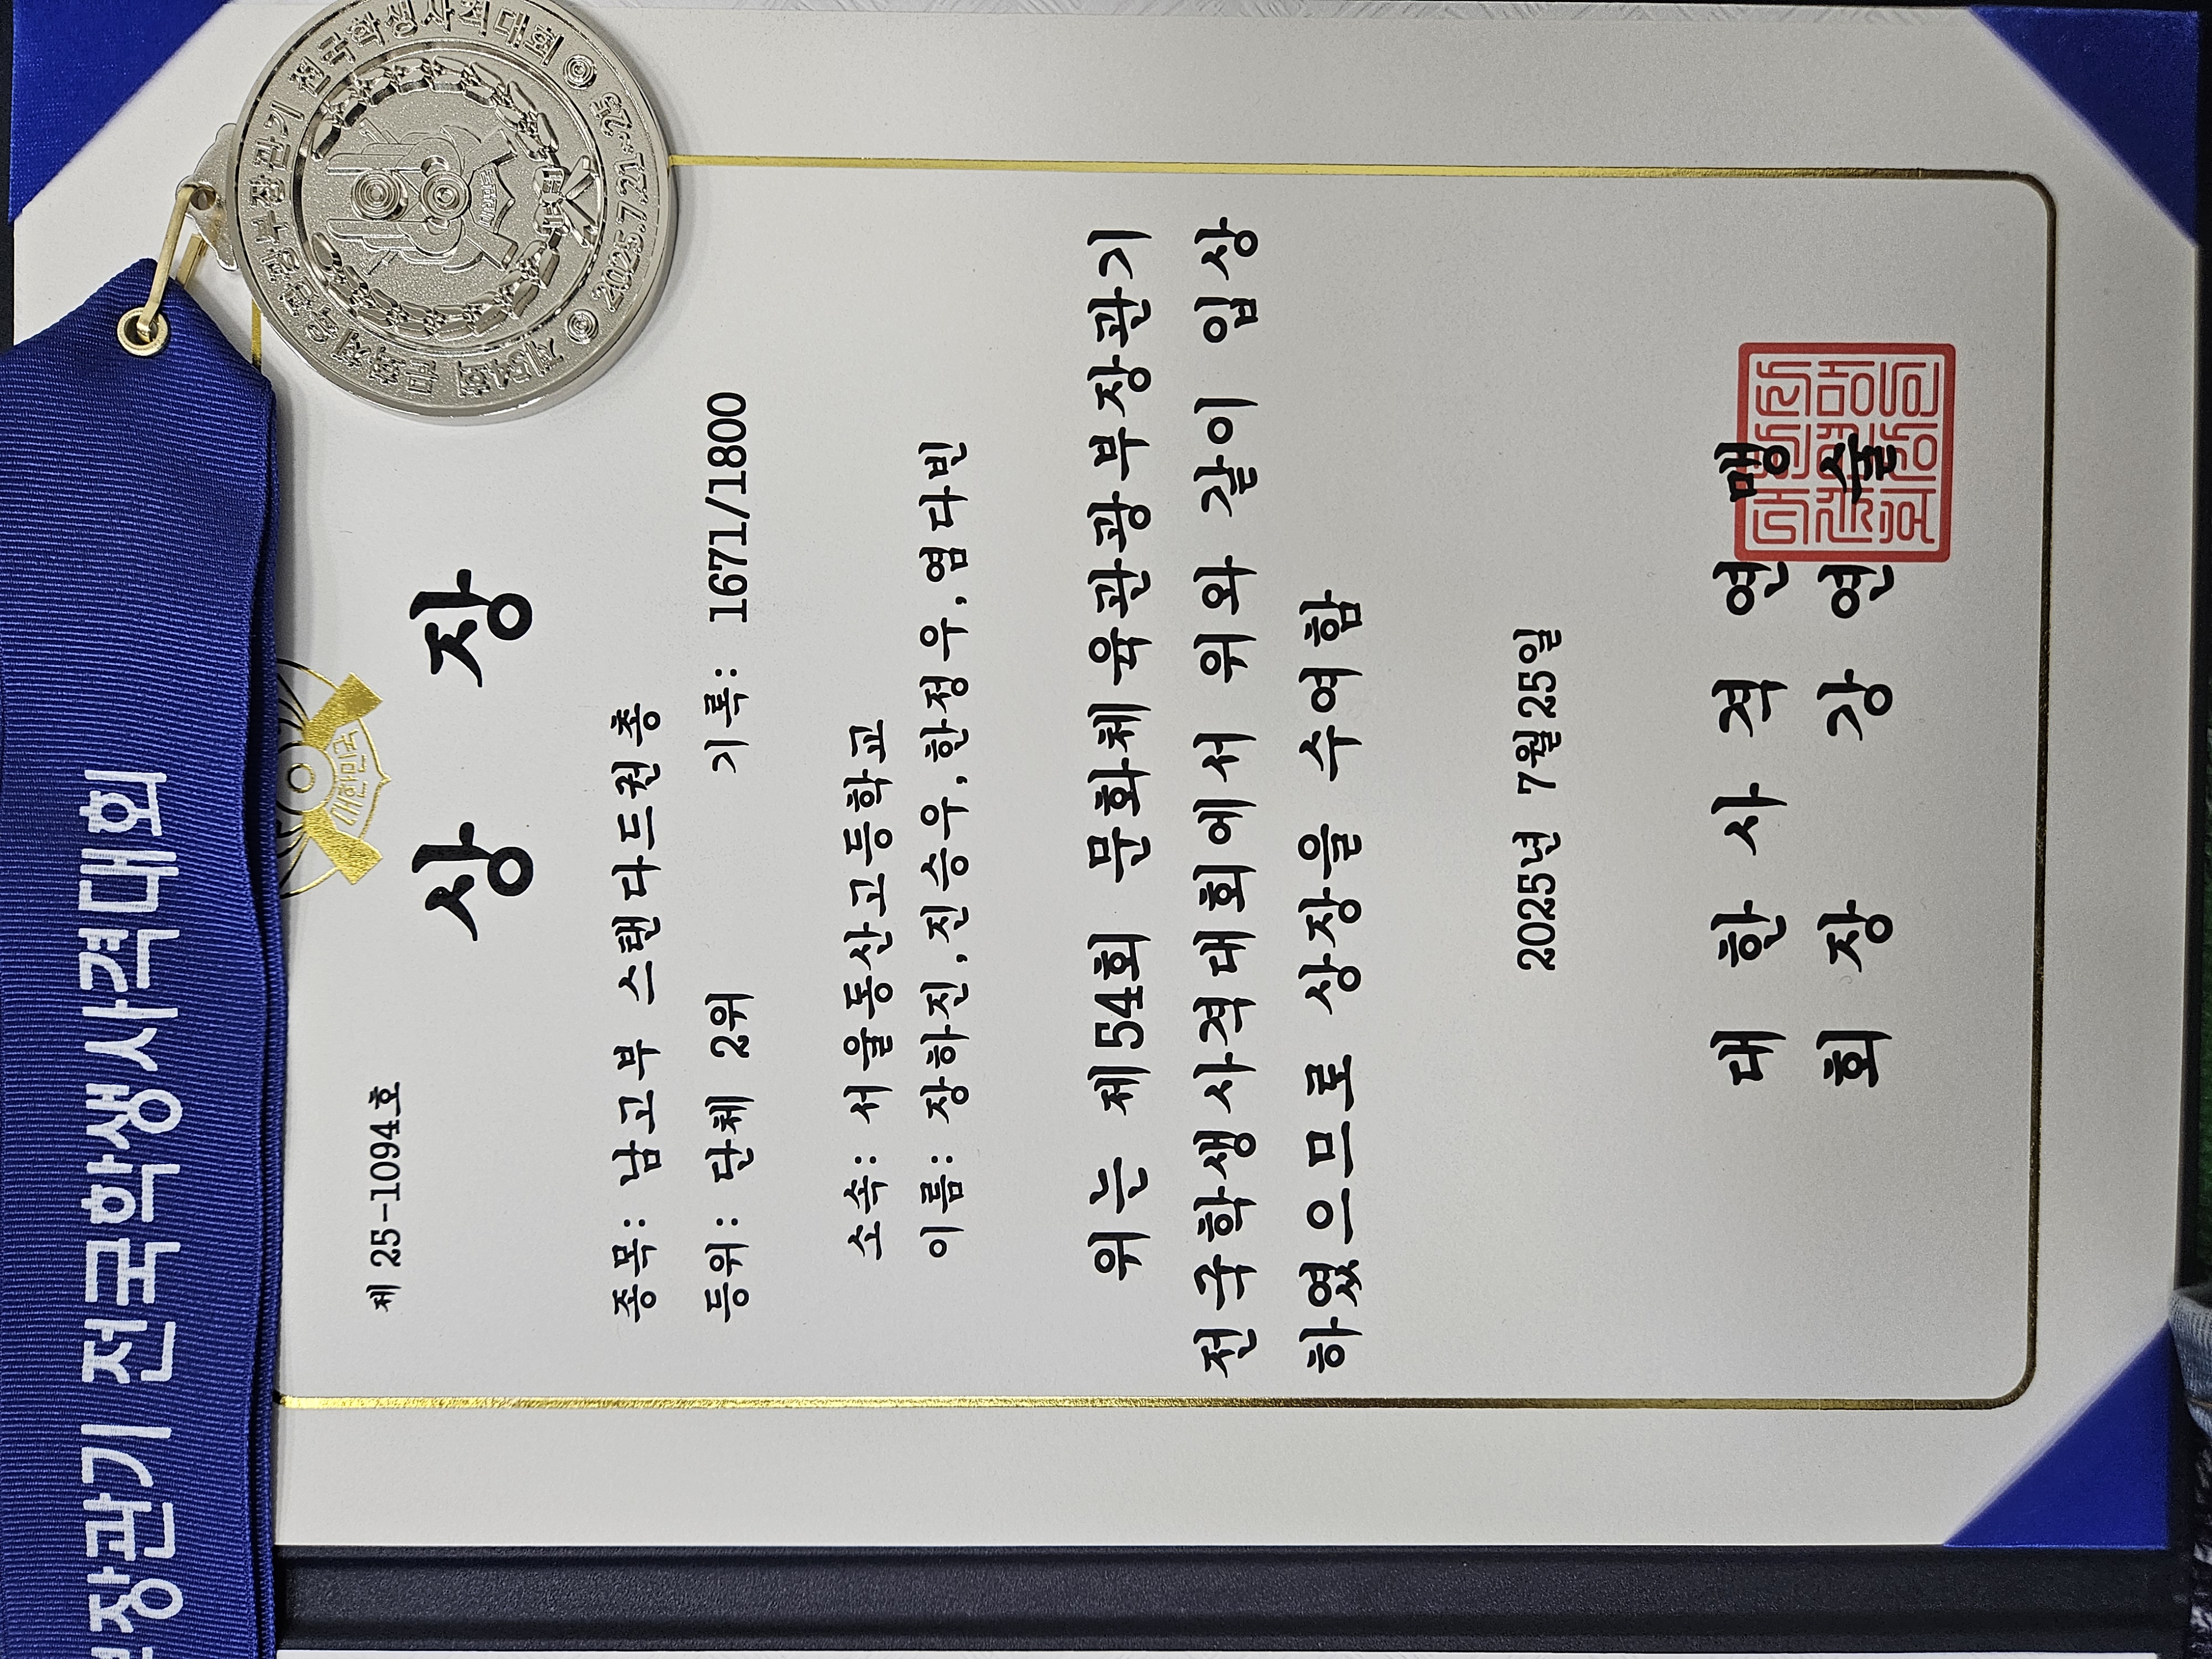 장관기 전국학생사격대회
제54회 문화체육관광부장관기 전국학생사격대회
2025.7.21~25
대한민국
제 25-1094호
상 장
종목: 남고부 스탠다드권총
등위: 단체 2위 기록: 1671/1800
소속: 서울동산고등학교
이름: 장하진,진승우,한정우,염다빈
위는 제54회 문화체육관광부장관기
전국학생사격대회에서 위와 같이 입상
하였으므로 상장을 수여함
2025년 7월25일
대한사격연맹
회장 강연술